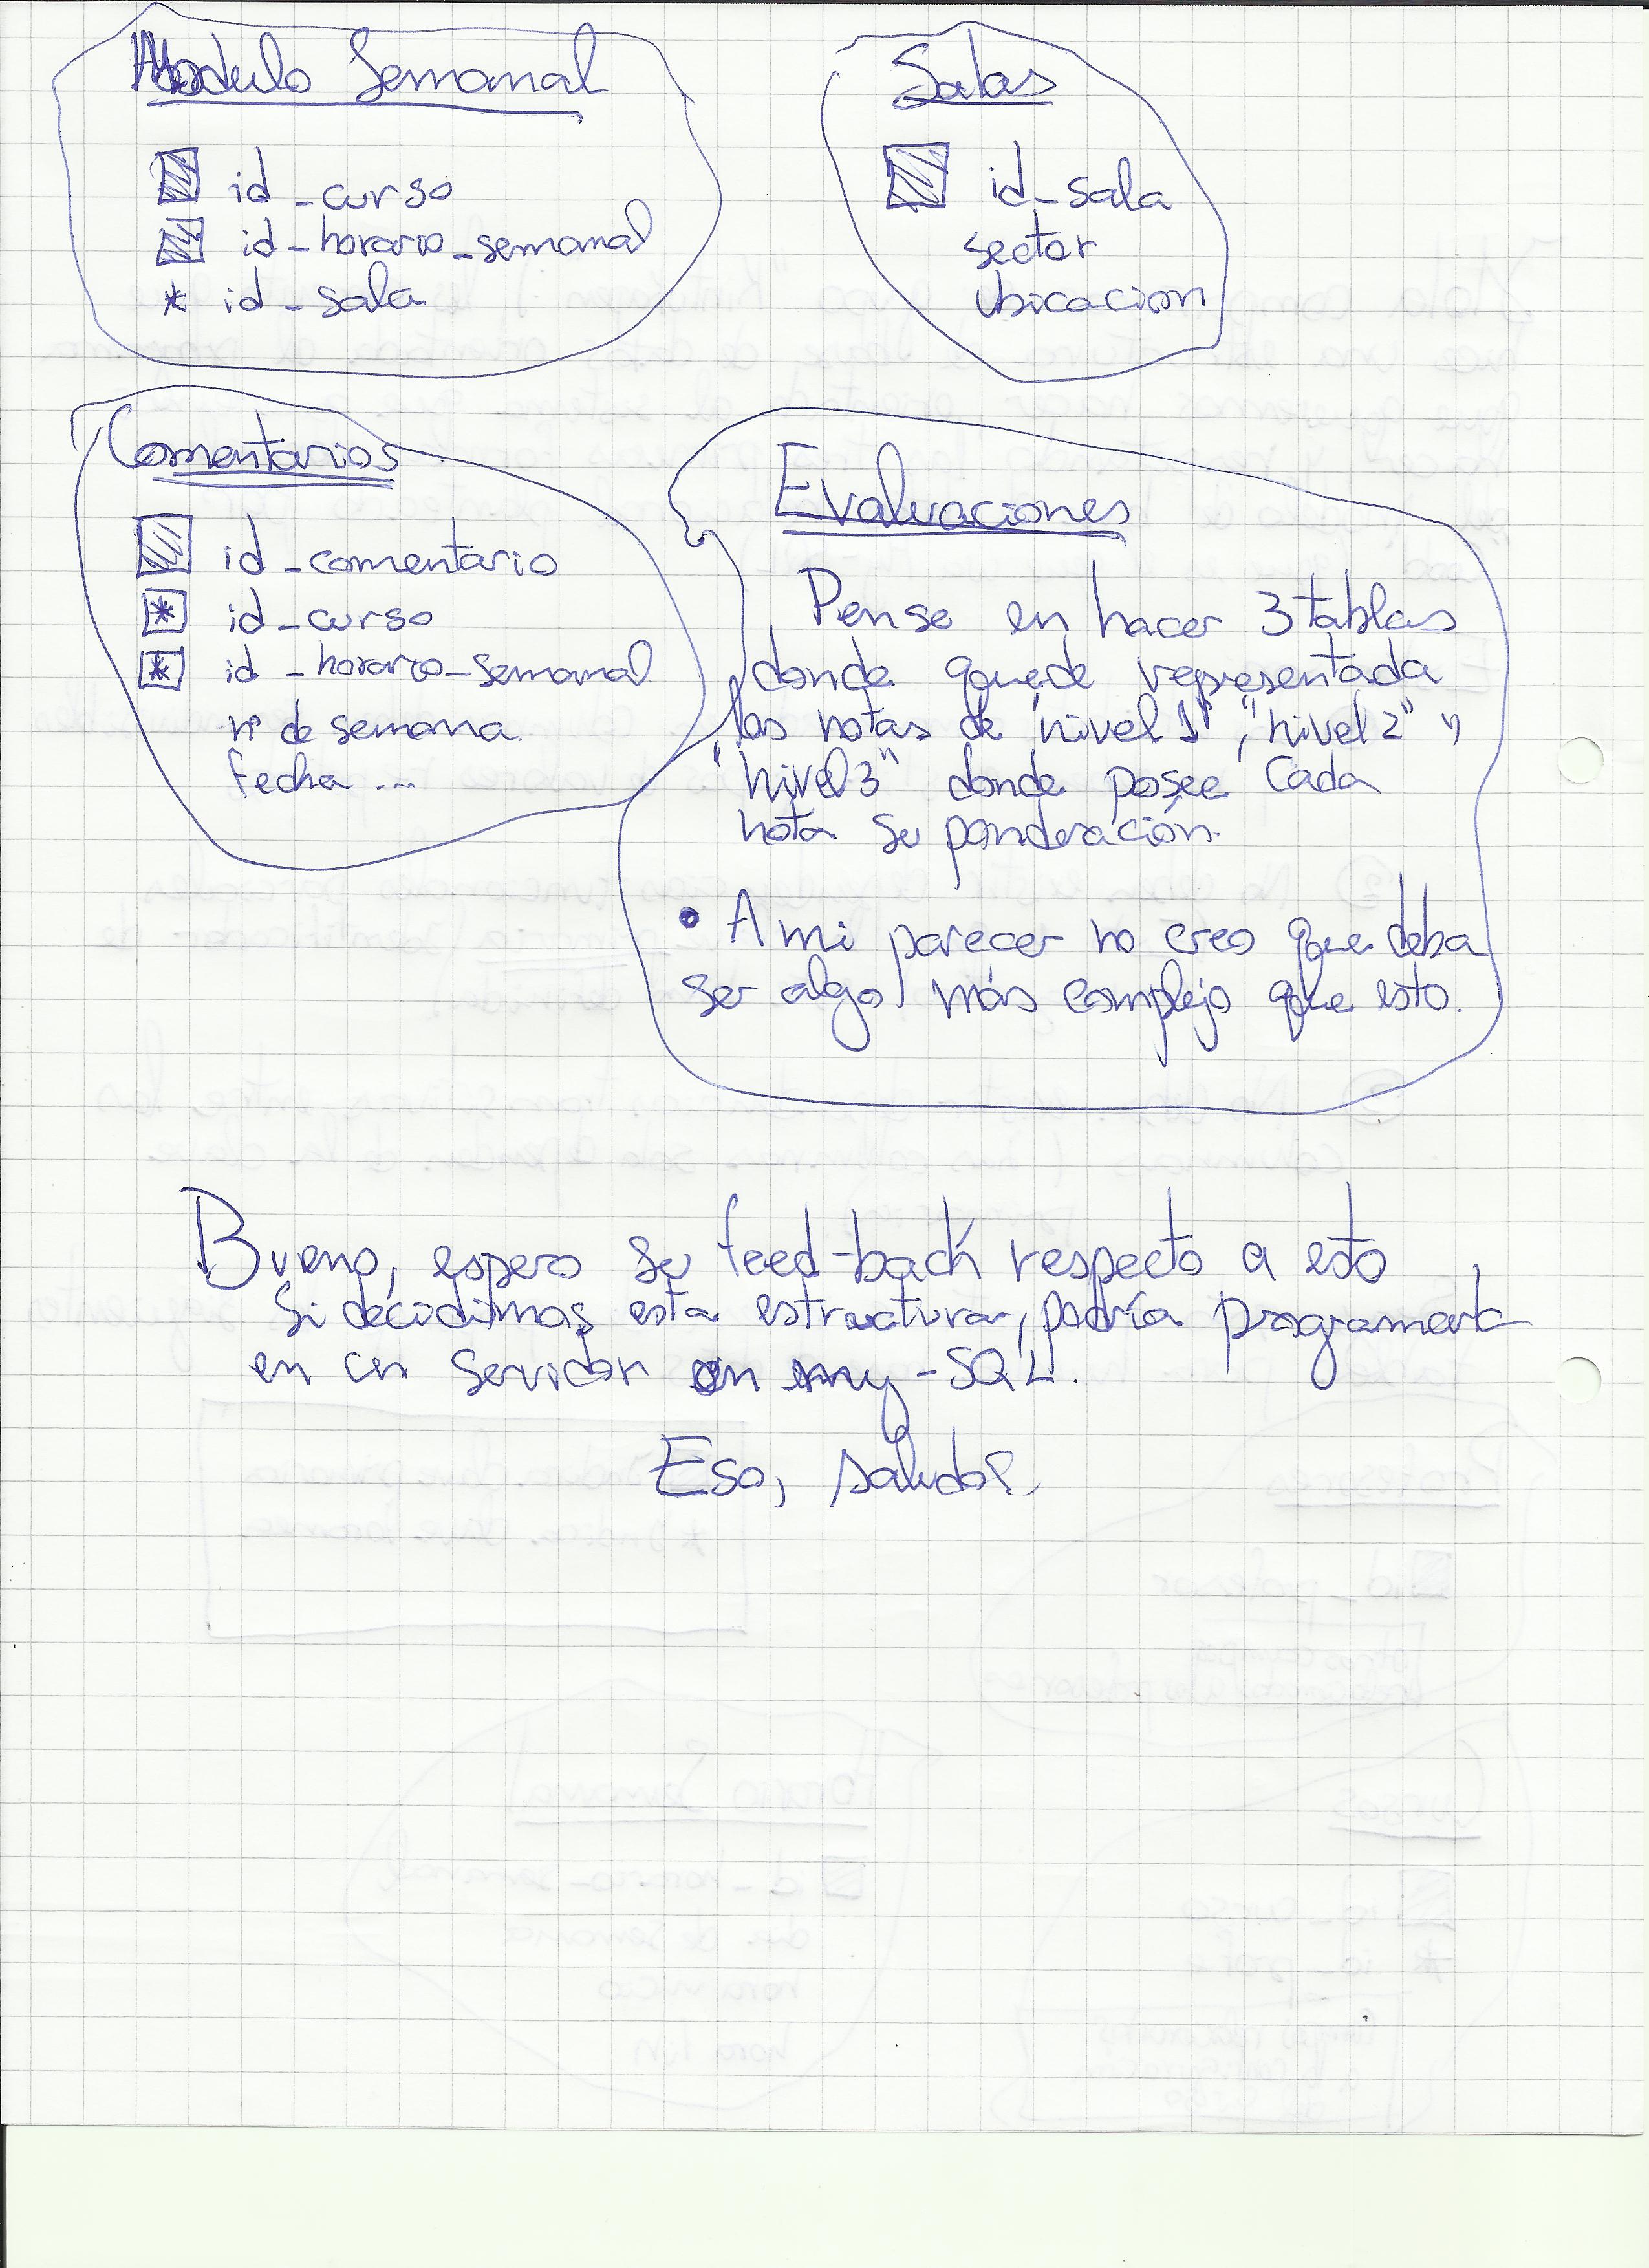 Modulo Semanal
id_curso
id_horario_semanal
* id_sala
Salas
id_sala
sector
Ubicacion
Comentarios
id_comentario
* id_curso
* id_horario_semanal
nº de semana
fecha ...
Evaluaciones
Pense en hacer 3 tablas
donde quede representada
las notas de "nivel 1", "nivel 2" y
"nivel 3" donde posee cada
nota su ponderación.
• A mi parecer no creo que deba
ser algo más complejo que esto.
Bueno, espero su feed-back respecto a esto
Si decidimos esta estructura, podría programarla
en un servidor en my-SQL.
Eso, saludos